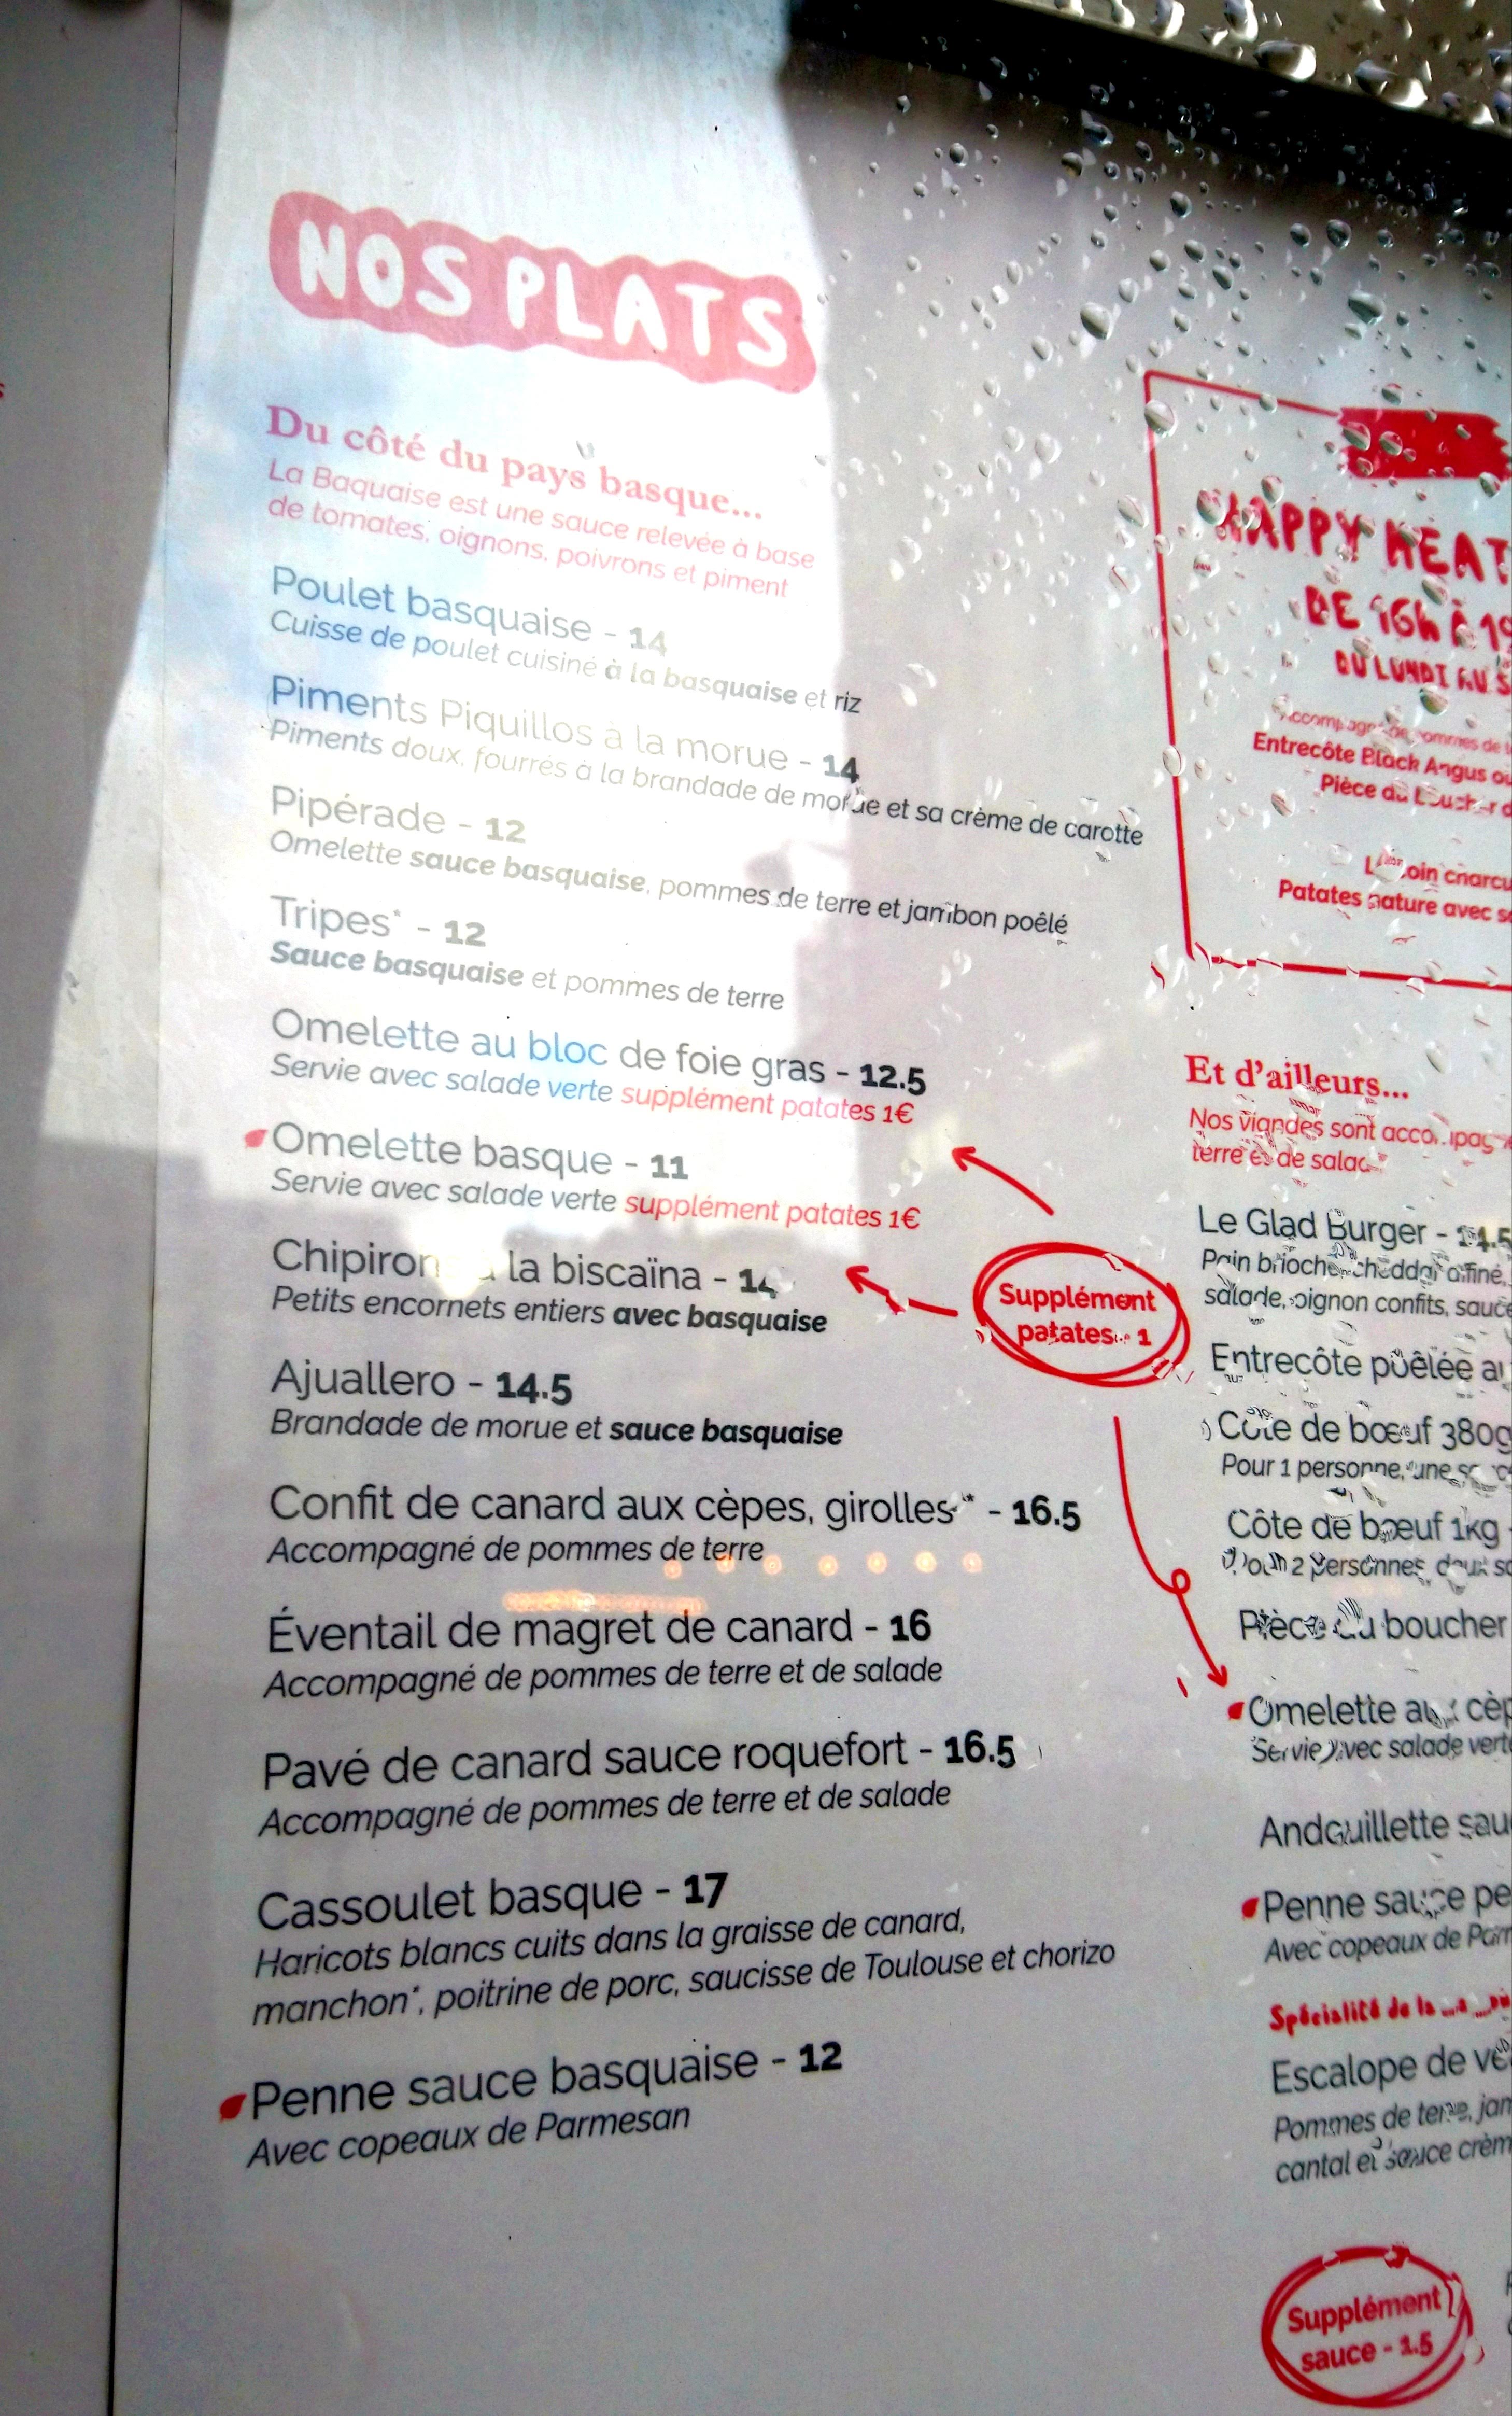 NOS PLATS
Du côté du pays basque...
La Baquaise est une sauce relevée à base
de tomates, oignons, poivrons et piment
Poulet basquaise - 14
Cuisse de poulet cuisiné à la basquaise et riz
Piments Piquillos à la morue - 14
Piments doux, fourrés à la brandade de morue et sa crème de carotte
Pipérade - 12
Omelette sauce basquaise, pommes de terre et jambon poêlé
Tripes* - 12
Sauce basquaise et pommes de terre
Omelette au bloc de foie gras - 12.5
Servie avec salade verte supplément patates 1€
Omelette basque - 11
Servie avec salade verte supplément patates 1€
la biscaïna -
Petits encornets entiers avec basquaise
Ajuallero - 14.5
Brandade de morue et sauce basquaise
Confit de canard aux cèpes, girolles* - 16.5
Accompagné de pommes de terre
Éventail de magret de canard - 16
Accompagné de pommes de terre et de salade
Pavé de canard sauce roquefort - 16.5
Accompagné de pommes de terre et de salade
Cassoulet basque - 17
Haricots blancs cuits dans la graisse de canard,
manchon*, poitrine de porc, saucisse de Toulouse et chorizo
Penne sauce basquaise - 12
Avec copeaux de Parmesan
Supplément
patates - 1
HAPPY
DE 16h À
DU LUNDI AU
Entrecôte Black Angus
Pièce du
Patates nature avec
Et d'ailleurs...
Nos viandes sont
terre et de salade
Le Glad Burger -
Pain brioché, cheddar affiné,
salade, oignon confits, sauce
Entrecôte poêlée
Côte de bœuf 380g
Pour 1 personne, une
Côte de bœuf 1kg
2 personnes, deux
Pièce du boucher
Omelette aux
Servie avec salade
Andouillette
Penne sauce
Avec copeaux de
Spécialité de la
Escalope de
Pommes de terre,
cantal et sauce
Supplément
sauce - 1.5